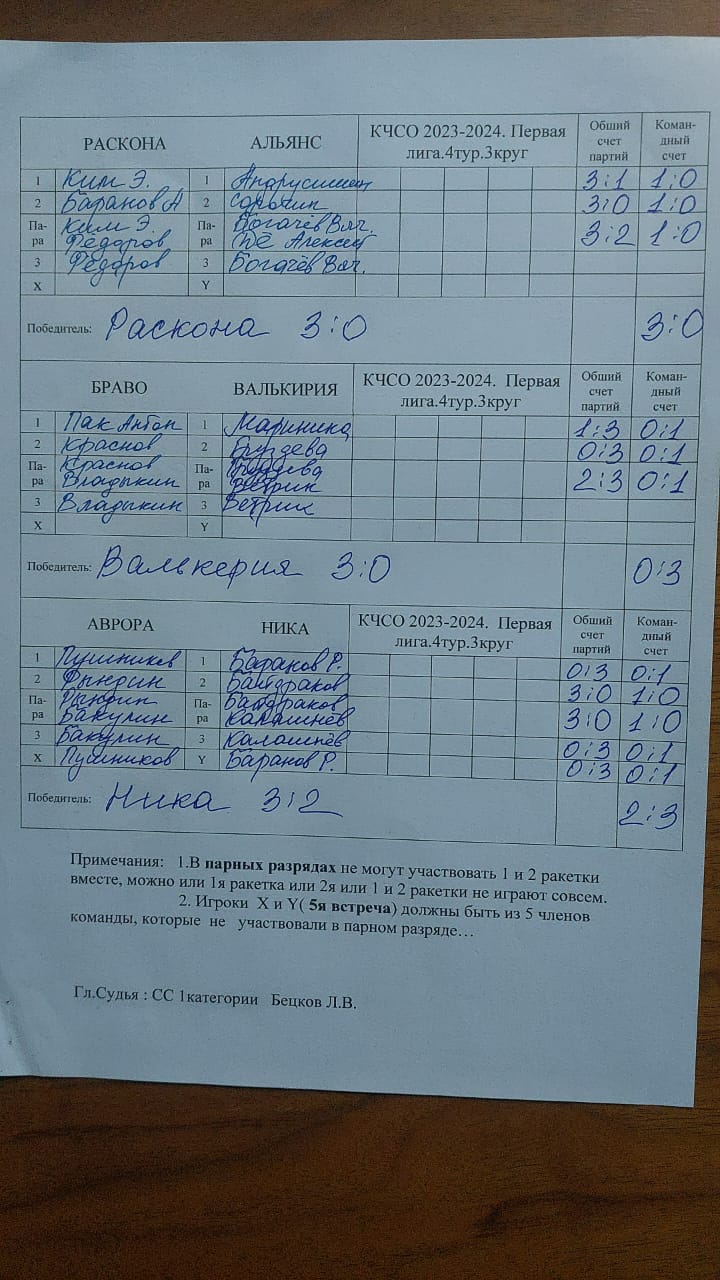 РАСКОНА АЛЬЯНС КЧСО 2023-2024. Первая лига.4тур.3круг Общий счет партий Коман-дный счет
1 Ким Э. 1 3:1 1:0
2 Баранов А 2 Сорокин 3:0 1:0
Па-ра Ким Э. Фёдоров Па-ра Богачёв Вяч. Алексей 3:2 1:0
3 Фёдоров 3 Богачёв Вяч.
X Y
Победитель: Раскона 3:0 3:0
БРАВО ВАЛЬКИРИЯ КЧСО 2023-2024. Первая лига.4тур.3круг Общий счет партий Коман-дный счет
1 Пак Антон 1 Маринина 1:3 0:1
2 Краснов 2 0:3 0:1
Па-ра Краснов Владыкин Па-ра Ветрик 2:3 0:1
3 Владыкин 3 Ветрик
X Y
Победитель: Валькерия 3:0 0:3
АВРОРА НИКА КЧСО 2023-2024. Первая лига.4тур.3круг Общий счет партий Коман-дный счет
1 Пушников 1 Баранов Р. 0:3 0:1
2 Рындин 2 Байдраков 3:0 1:0
Па-ра Рындин Бакулин Па-ра Байдраков Калашнёв 3:0 1:0
3 Бакулин 3 Калашнёв 0:3 0:1
X Пушников Y Баранов Р. 0:3 0:1
Победитель: Ника 3:2 2:3
Примечания: 1.В парных разрядах не могут участвовать 1 и 2 ракетки
вместе, можно или 1я ракетка или 2я или 1 и 2 ракетки не играют совсем.
2. Игроки X и Y( 5я встреча) должны быть из 5 членов
команды, которые не участвовали в парном разряде…
Гл.Судья : СС 1категории Бецков Л.В.